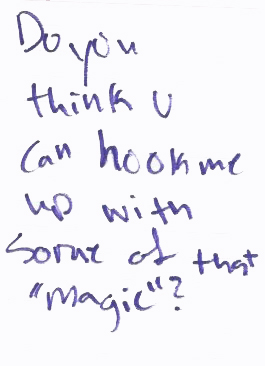 Do you
think u
can hook me
up with
some of that
"magic"?